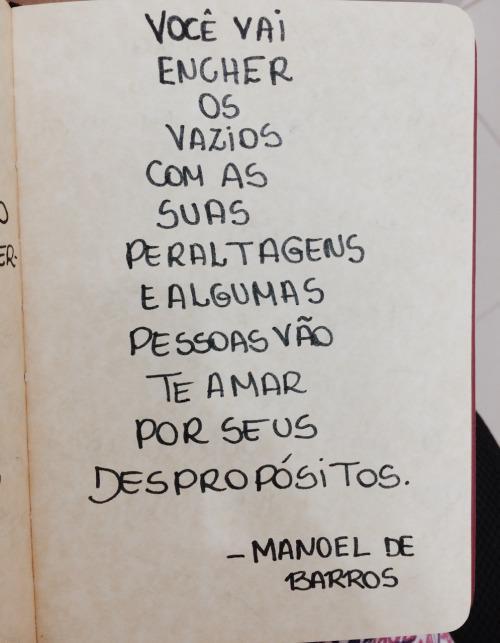 VOCÊ VAI
ENCHER
OS
VAZIOS
COM AS
SUAS
PERALTAGENS
E ALGUMAS
PESSOAS VÃO
TE AMAR
POR SEUS
DESPROPÓSITOS.
- MANOEL DE
BARROS